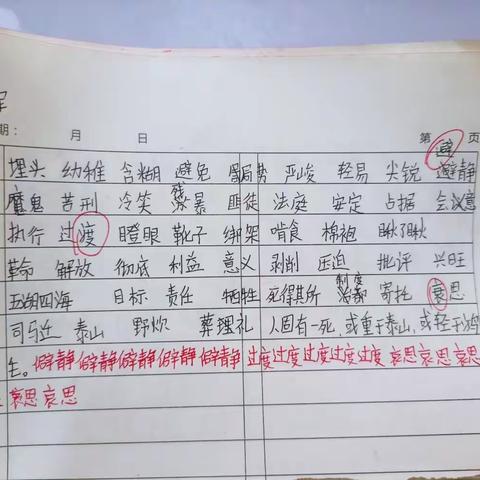 期： 月 日 第 页
避
埋头 幼稚 含糊 避免 局势 严峻 轻易 尖锐 避静
魔鬼 苦刑 冷笑 残暴 匪徒 法庭 安定 占据 会议意
执行 过渡 瞪眼 靴子 绑架 啃食 棉袍 瞅了瞅
革命 解放 彻底 利益 意义 剥削 压迫 批评 兴旺
五湖四海 目标 责任 牺牲 死得其所 制度 寄托 哀思
司马迁 泰山 野炊 葬 礼 人固有一死，或重于泰山，或轻于鸿
毛。僻静僻静僻静僻静僻静 过度过度过度过度过度 哀思哀思哀思
哀思哀思